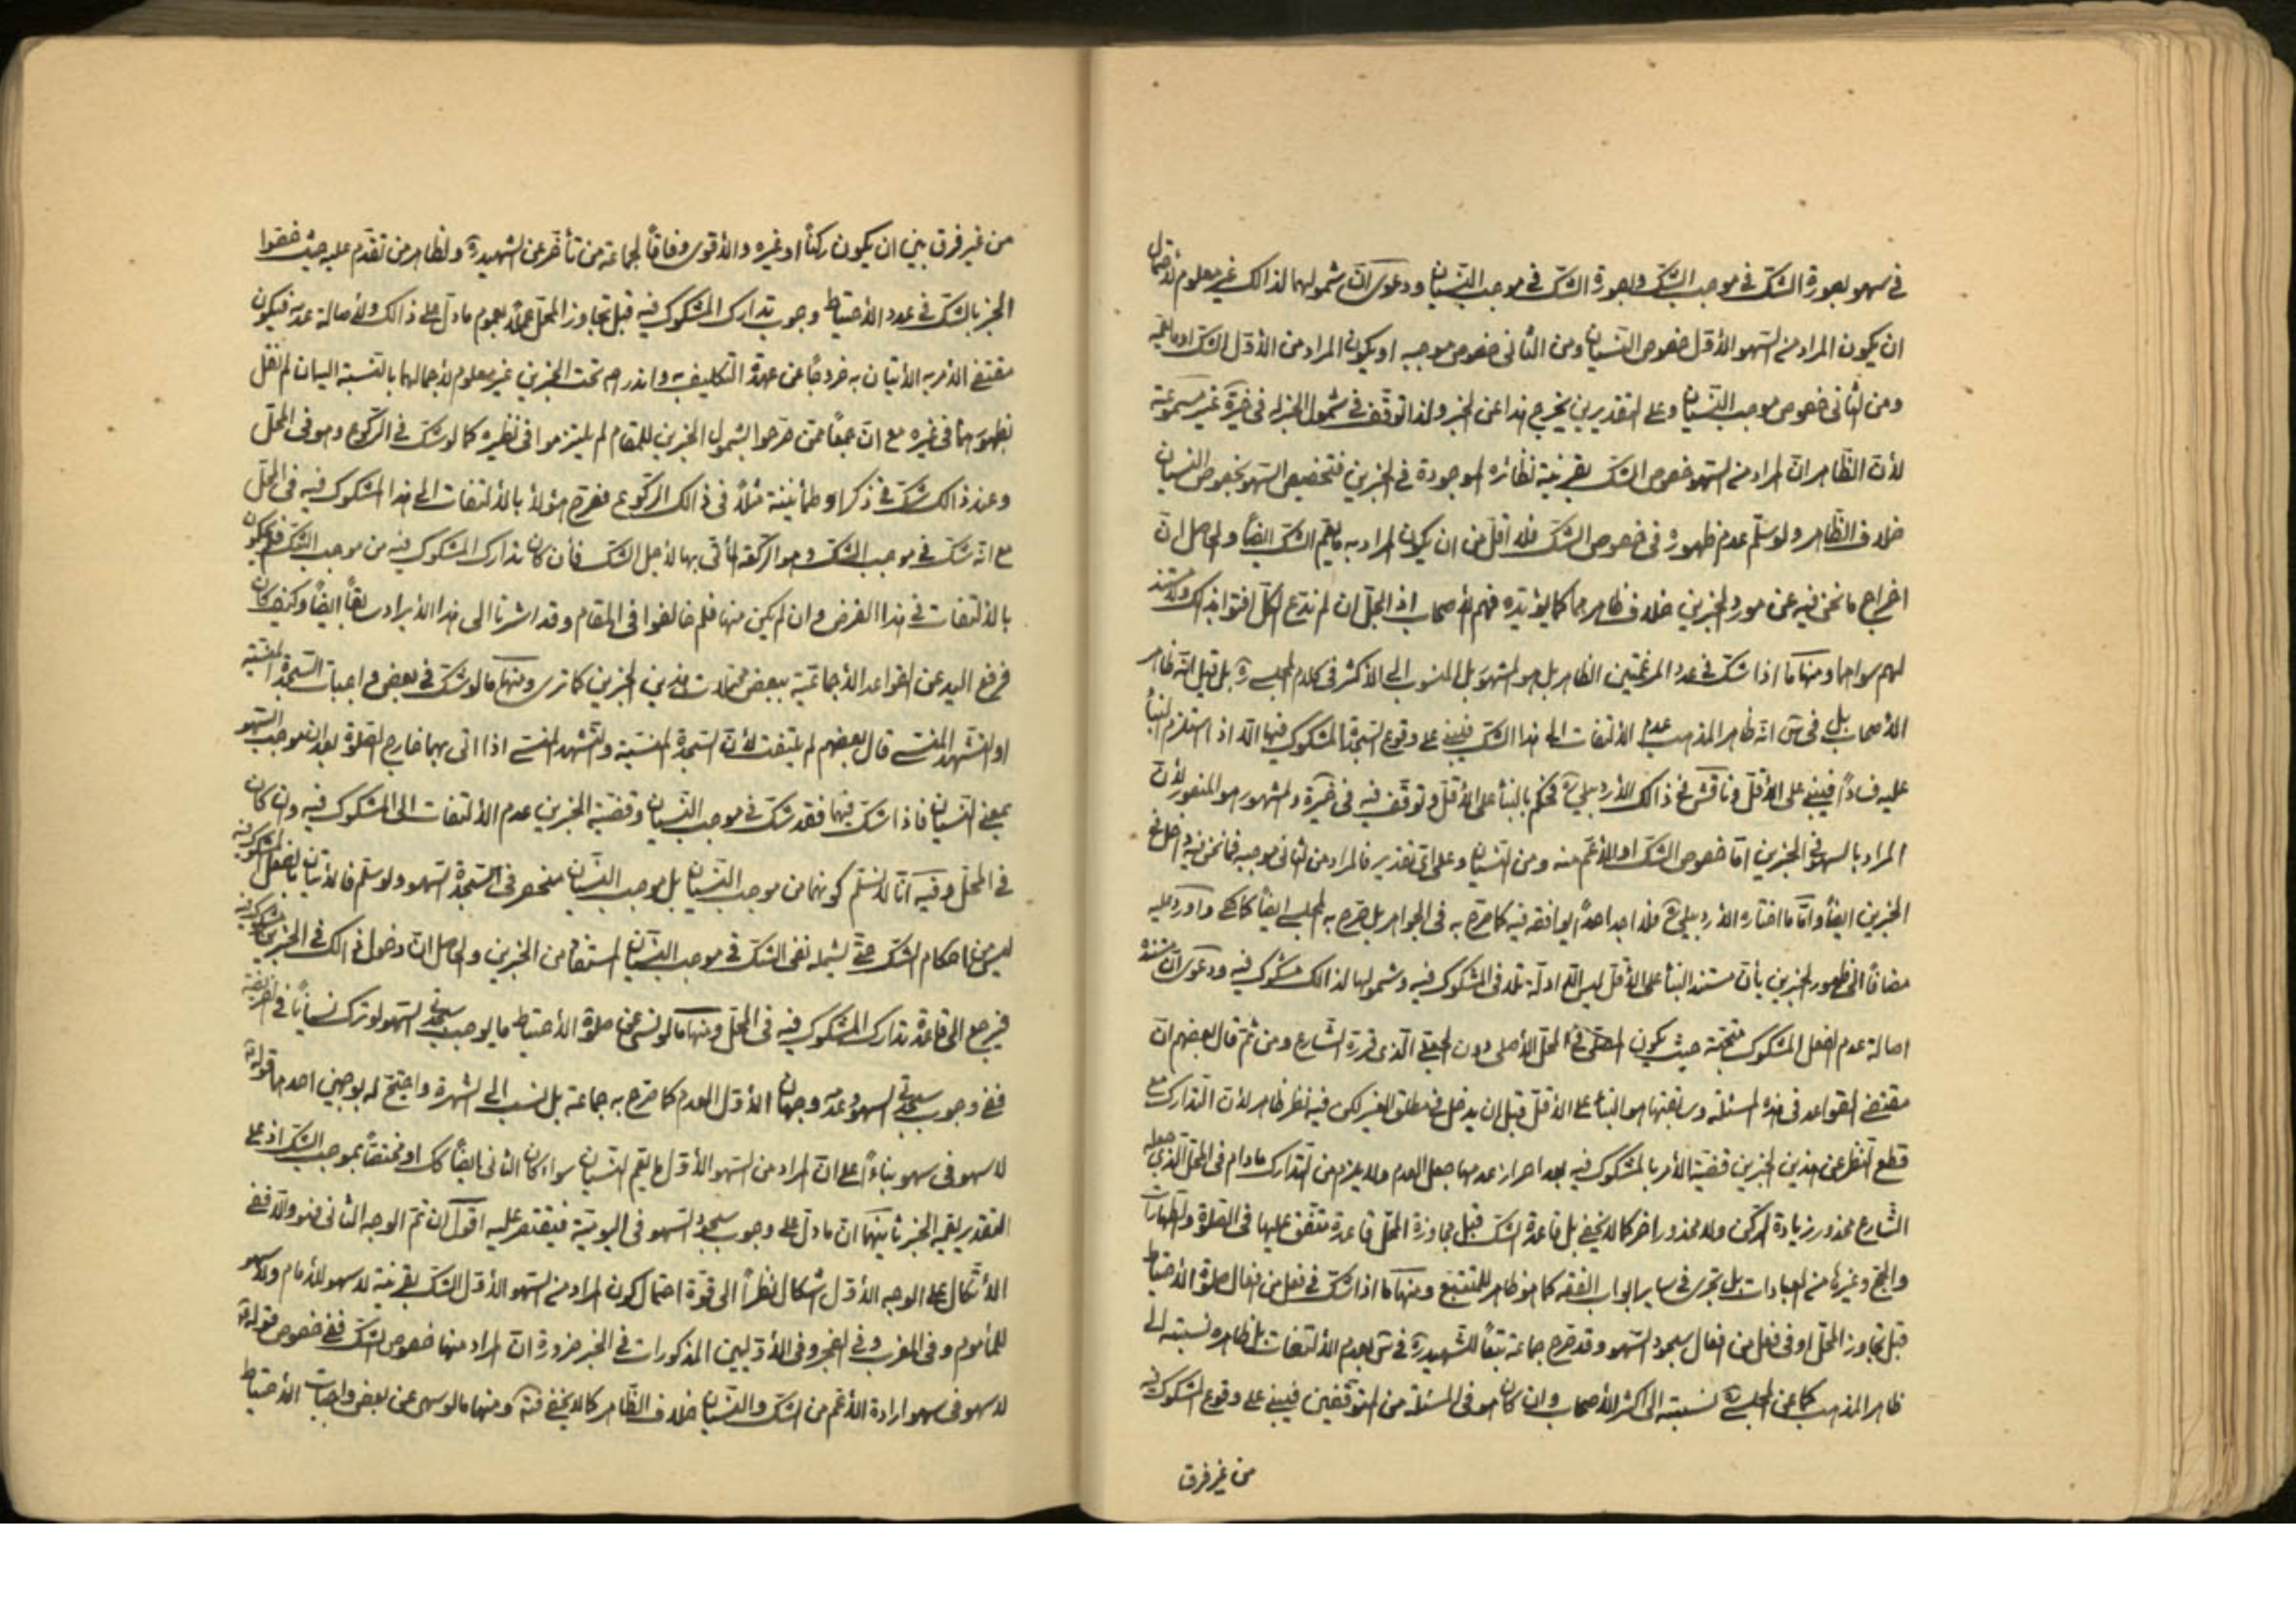 في سهو بصورة الشك في موجب الشك وبصورة الشك في موجب النسيان ودعوى ان شمولهما لذالك غير معلوم لاحتمال
ان يكون المراد من السهو الأول خصوص النسيان ومن الثاني خصوص موجبه او يكون المراد من الأول الشك او ما يعمه
ومن الثاني خصوص موجب النسيان وعلى التقديرين يخرج هذا عن الخبر ولذا توقف في شمول الخبر له في خيرة غير مسموعة
لأن الظاهر ان المراد من السهو خصوص الشك بقرينة نظائره الموجودة في الخبرين فتخصيص السهو بخصوص النسيان
خلاف الظاهر ولو سلم عدم ظهوره في خصوص الشك فلا اقل من ان يكون المراد به ما يعم الشك ايضاً والحاصل ان
اخراج ما نحن فيه عن مورد الخبرين خلاف ظاهرهما كما يؤيده فهم الأصحاب اذ الجل ان لم ندع الكل افتوا بذالك ولا مستند
لهم سواهما ومنها ما اذا شك في عدد المرغمتين الظاهر بل هو المشهور بل المنسوب الى الأكثر في كلام المجلسي ره بل قيل انه ظاهر
الأصحاب بل في انه ظاهر المذهب عدم الألتفات الى هذا الشك فيبني على وقوع السجدة المشكوك فيها الا اذا استلزم البناء
عليه فساداً فيبني على الأقل وناقش في ذالك الأردبيلي ره فحكم بالبناء على الأقل وتوقف فيه في خيرة والمشهور هو المنصور لأن
المراد بالسهو في الخبرين اما خصوص الشك او الأعم منه ومن النسيان وعلى اى تقدير فالمراد من الثاني موجبه فما نحن فيه داخل في
الخبرين ايضاً واما ما اختاره الأردبيلي ره فلم اجد احداً يوافقه فيه كما صرح به في الجواهر بل صرح به المجلسي ايضاً واورد عليه
مضافاً الى ظهور الخبرين بأن مستند البناء على الأقل ليس الا ادلة تلافى المشكوك فيه وشمولها لذالك مشكوك فيه ودعوى ان مستنده
اصالة عدم الفعل المشكوك متجهة حيث يكون في المحل الأصلي دون الذى قرره الشارع ومن ثم قال بعضهم ان
مقتضى القواعد في هذه المسئلة وسابقتها هو البناء على الأقل قبل ان يدخل في مطلق الغير لكن فيه نظر ظاهر لأن التدارك مع
قطع النظر عن هذين الخبرين قضية الأمر بالمشكوك فيه بعد احراز عدمها جعل العدم ولا يلزم من التدارك ما دام في المحل الذى جعله
الشارع محذور زيادة الركن ولا محذور اخر كما لا يخفى بل قاعدة الشك قبل مجاوزة المحل قاعدة متفق عليها في الصلوة والطهارات
والحج وغيرها من العبادات بل تجرى في ساير ابواب الفقه كما هو ظاهر للمتتبع ومنها ما اذا شك في فعل من افعال صلوة الأحتياط
قبل تجاوز المحل او في فعل من افعال سجود السهو وقد صرح جماعة تبعاً للشهيد ره في بعدم الألتفات بل ظاهره نسبته الى
ظاهر المذهب كما عن المجلسي ره نسبته الى اكثر الأصحاب وان كان هو في المسئلة من المتوقفين فيبني على وقوع المشكوك فيه
من غير فرق
من غير فرق بين ان يكون ركناً او غيره والأقوى وفاقاً لجماعة من تأخر عن الشهيد ره ولظاهر من تقدم عليه حيث خصوا
الخبر بالشك في عدد الأحتياط وجوب تدارك المشكوك فيه قبل تجاوز المحل عملاً بعموم ما دل على ذالك ولأصالة عدمه فيكون
مقتضى الأمر به الأتيان به خروجاً عن عهدة التكليف به واندراجه تحت الخبرين غير معلوم لأجمالهما بالنسبة اليه ان لم نقل
بظهورهما في غيره مع ان جمعاً ممن صرحوا بشمول الخبرين للمقام لم يلتزموا في نظيره كما لو شك في الركوع وهو في المحل
وعند ذالك شك في ذكر او طمأنينة مثلاً في ذالك الركوع فصرح هؤلاء بالألتفات الى هذا المشكوك فيه في المحل
مع انه شك في موجب الشك وهو الركعة المأتى بها لأجل الشك فأن كان تدارك المشكوك فيه من موجب الشك فلم يحكمون
بالألتفات في هذا الفرض وان لم يكن منها فلم خالفوا في المقام وقد اشرنا الى هذا الأيراد سابقاً ايضاً وكيف كان
فرفع اليد عن القواعد الأجماعية ببعض محتملات هذين الخبرين كما ترى ومنها ما لو شك في بعض واجبات السجدة المنسية
او التشهد المنسى قال بعضهم لم يلتفت لأن السجدة المنسية والتشهد المنسى اذا اتى بهما خارج الصلوة يعدان موجب السهو
بمعنى النسيان فاذا شك فيهما فقد شك في موجب النسيان وقضية الخبرين عدم الألتفات الى المشكوك فيه وان كان
في المحل وفيه انا لا نسلم كونهما من موجب النسيان بل موجب النسيان منحصر في السجدة السهو ولو سلم فالأتيان بالفعل المشكوك فيه
ليس من احكام الشك حتى يشمله نفى الشك في موجب النسيان المستفاد من الخبرين والحاصل ان دخول ذالك في الخبرين مشكوك فيه
فيرجع الى قاعدة تدارك المشكوك فيه في المحل ومنها ما لو نسى في صلوة الأحتياط ما يوجب سجدتى السهو لو ترك نسياناً في الفريضة
ففى وجوب سجدتى السهو وعدمه وجهان الأول العدم كما صرح به جماعة بل نسب الى الشهرة واحتج له بوجهين احدهما قوله ع
لا سهو في سهو بناءً على ان المراد من السهو الأول ما يعم النسيان سواء كان الثاني ايضاً كك او مختصاً بموجب الشك اذ على
التقديرين يعمه الخبر ثانيهما ان ما دل على وجوب سجود السهو في اليومية فيقتصر عليه اقول ان تم الوجه الثاني فهو والا ففى
الأتكال على الوجه الأول اشكال نظراً الى قوة احتمال كون المراد من السهو الأول الشك بقرينة لا سهو للأمام ولا سهو
للمأموم وفي المغرب وفي الفجر وفي الأوليين المذكورات في الخبر ضرورة ان المراد منها خصوص الشك ففى خصوص قوله ع
لا سهو في سهو ارادة الأعم من الشك والنسيان خلاف الظاهر كما لا يخفى فته ومنها ما لو سهى عن بعض واجبات الأحتياط